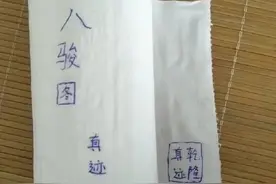 八骏图
真迹
乾隆
真迹